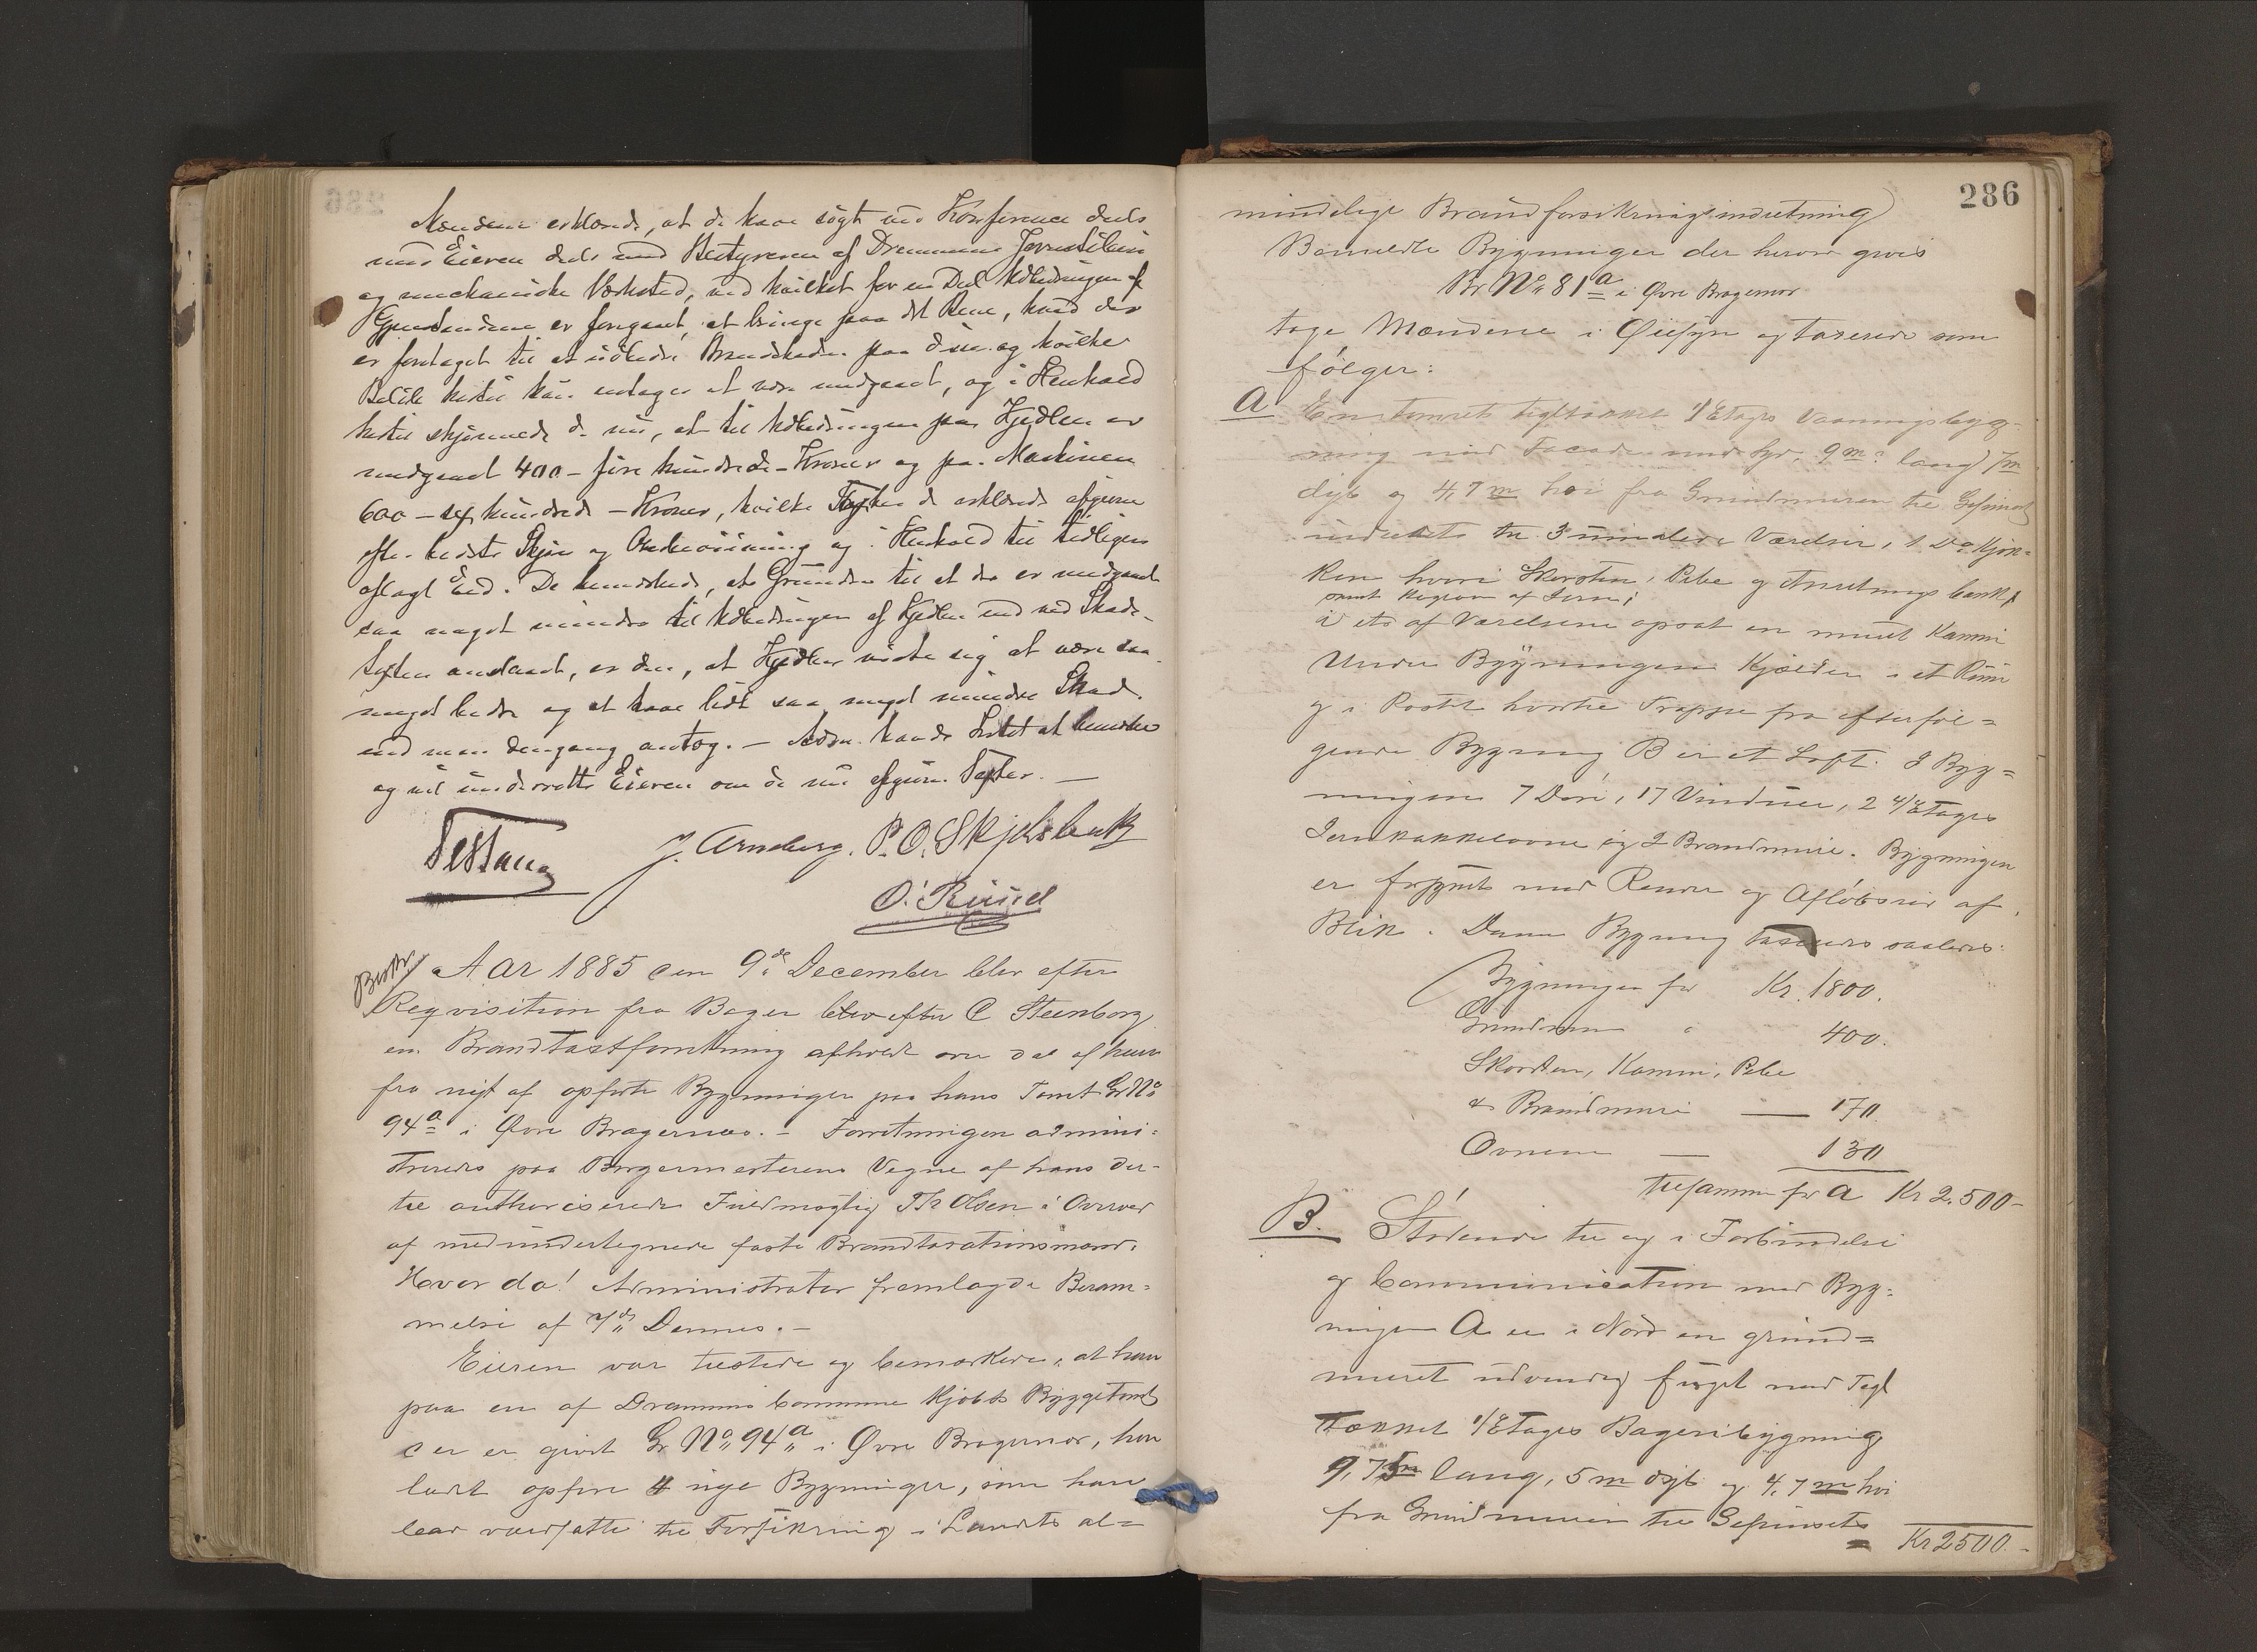 Mændene erklærede, at de have søgt ved Konference deels
med Eieren deels med Bestyreren af Drammens Jernstøberi
og mechaniske Værksted, ved hvilket for en Del Udbedringen af
Gjenstandene er foregaaet, at bringe paa det Rene, hvad der
er foretaget til at udbedre Brandskaden paa disse og hvilke
Beløb hertil kan antages at være medgaaet, og i Henhold
hertil skjønnede de nu, at til Udbedringen paa Kjedlen er
medgaaet 400 – fire hundrede – Kroner og paa Maskinen
600 – sex hundrede – Kroner, hvilke Taxter de erklærede afgivne
efter bedste Skjøn og Overbevisning og i Henhold til tidligere
aflagt Eed. De bemærkede, at Grunden til at der er medgaaet
saa meget mindre til Udbedringen af Kjedlen end ved Skade-
taxten anslaaet, er den, at Kjedlen viste sig at være saa
meget bedre og at have lidt saa meget mindre Skade
end man dengang antog. – Adm. havde Intet at bemærke
og vil underrette Eieren om de nu afgivne Taxter. –
J. Arneberg. P. O. Skjelsbæk
O. Ruud
Aar 1885 den 9de December blev efter
Reqvisition fra Bager blev efter C Steenborg
en Brandtaxtforretning afholdt over de af ham
fra nyt af opførte Bygninger paa hans Tomt Gr No
94a i Øvre Bragernæs. – Forretningen admini=
streredes paa Borgermesterens Vegne af hans der-
til authoriserede Fuldmægtig Th Olsen i Overvær
af medundertegnede faste Brandtaxationsmænd.
Hvor da! Administrator fremlagde Beram=
melse af 7de Dennes. –
Eieren var tilstede og bemærkede, at han
paa en af Drammens Commune kjøbt Byggetomt
der er givet Gr No 94a i Øvre Bragernæs, har
ladet opføre 4 nye Bygninger, som han
lader værdsætte til Forsikring i Landets al=
286
mindelige Brandforsikringsindretning
Bemeldte Bygninger der herved gives
Br No 81a i Øvre Bragernæs
toge Mændene i Øiesyn og taxerede som
følger:
A En tømret tegltækket 1/Etages Vaaningsbyg-
ning med Facade mod Syd, 9 m. lang 7 m
dyb og 4,7 m høi fra Grundmuren til Gesimset
indredet til 3 malede Værelser, 1 Do Kjøk=
ken hvori Skorsten, Pibe og Anretningsbænk,
samt Kogeovn af Jern;
i et af Værelserne opsat en muret Kamin
Under Bygningen Kjælder i et Rum
og i Røstet hvortil Trappe fra efterføl=
gende Bygning B er et Loft. I Byg=
ningen 7 Døre, 17 Vinduer, 2 4/Etages
Jernkakkelovne og 2 Brandmure. Bygningen
er forsynet med Render og Afløbsrør af
Blik. Denne Bygning taxeredes saaledes:
Bygningen for Kr. 1800.
Grundmuren " 400.
Skorsten, Kamin, Pibe
& Brandmure — 170
Ovnene — 130
tilsammen for A Kr 2,500 –
B. Stødende til og i Forbindelse
og Communication med Byg=
ningen A er i Nord en grund=
muret udvendig fuget med Tegl
tækket 1/Etages Bageribygning
9,75 m lang, 5 m dyb og 4,7 m høi
fra Grundmuren til Gesimset
Kr 2500. –